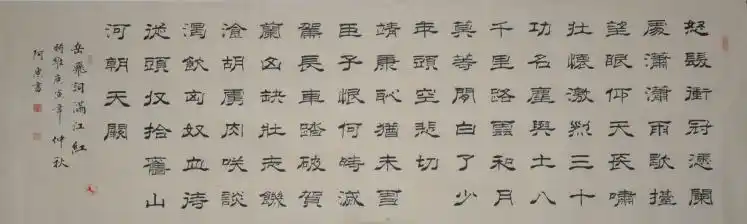 怒髮衝冠憑闌
處瀟瀟雨歇擡
望眼仰天長嘯
壯懷激烈三十
功名塵與土八
千里路雲和月
莫等閒白了少
年頭空悲切
靖康恥猶未雪
臣子恨何時滅
駕長車踏破賀
蘭山缺壯志饑
湌胡虜肉咲談
渴飲匈奴血待
從頭收拾舊山
河朝天闕
岳飛詞滿江紅
時維庚寅年仲秋